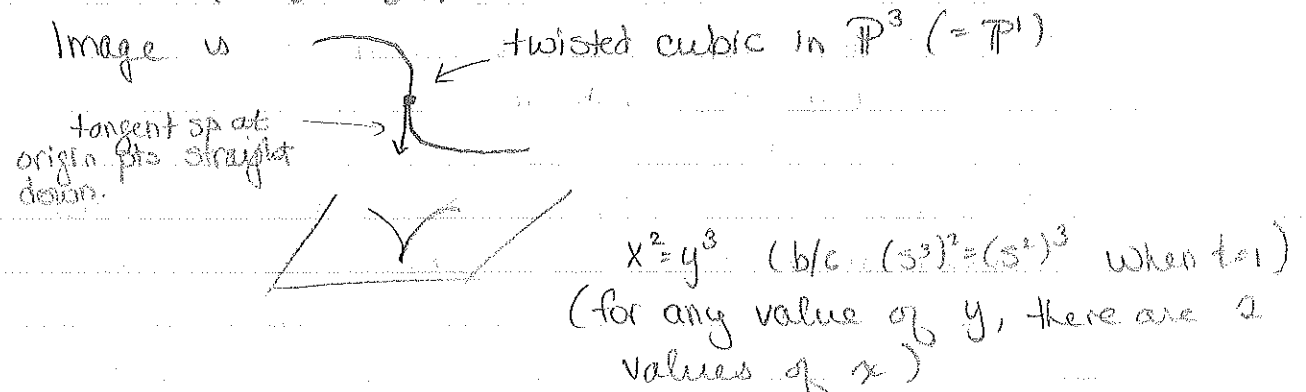 Image is twisted cubic in ℙ³ (= ℙ¹)
tangent sp at
origin pts straight
down.
x² = y³ (b/c (s³)² = (s²)³ when t=1)
(for any value of y, there are 2
values of x)